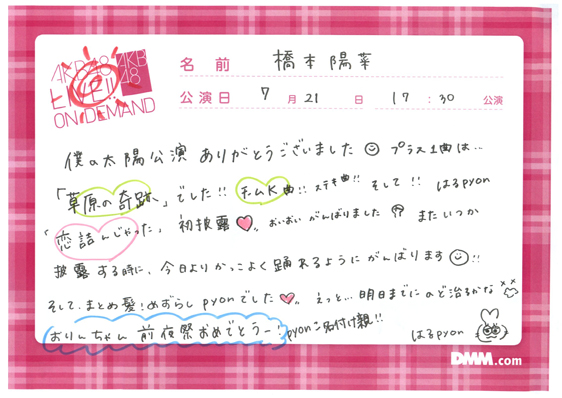 AKB48 LIVE!! ON DEMAND
AKB48
名前 橋本陽菜
公演日 7月21日 17:30公演
僕の太陽公演 ありがとうございました プラス1曲は…
「草原の奇跡」でした!! チームK曲!! ステキ曲!! そして!! はるpyon
「恋詰んじゃった」初披露 おいおい がんばりました また いつか
披露する時に、今日よりかっこよく踊れるようにがんばります!!
そして、まとめ髪!めずらしpyonでした えっと…明日までにのど治るかな
おりんちゃん 前夜祭おめでとうー! pyonこ名付け親!! はるpyon
DMM.com